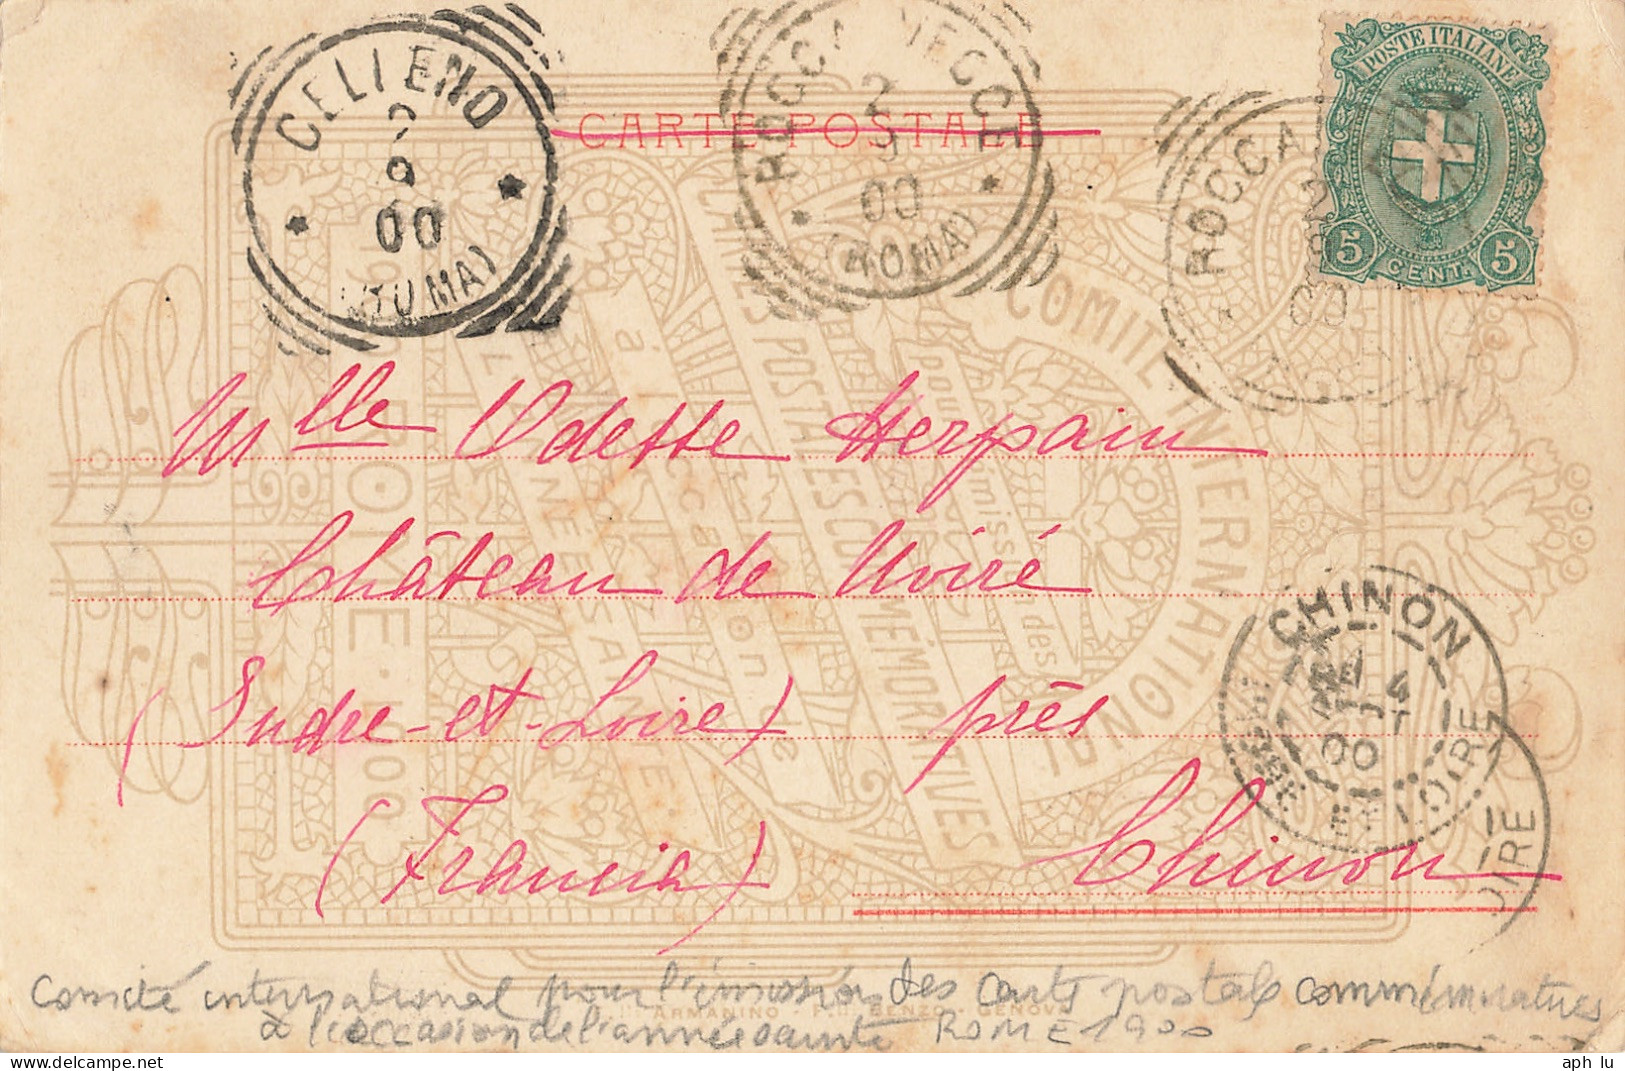 CELLENO
2
9
00
(ROMA)
ROCCALVECCE
2
9
00
(ROMA)
ROCCA
2
00
POSTE ITALIANE
5 CENT. 5
CARTE POSTALE
COMITÉ INTERNATIONAL
pour l'émission des
CARTES POSTALES COMMÉMORATIVES
à l'occasion de
ROME 1900
Mlle Odette Herpain
Château de Uviré
(Indre-et-Loire) près
(Francia) Chinon
CHINON
4
00
ET LOIRE
OIRE
Comité international pour l'émission des carts postals commémoratives
à l'occasion de l'année sainte ROME 1900
ARMANINO - F.lli BENZO - GENOVA
aph lu